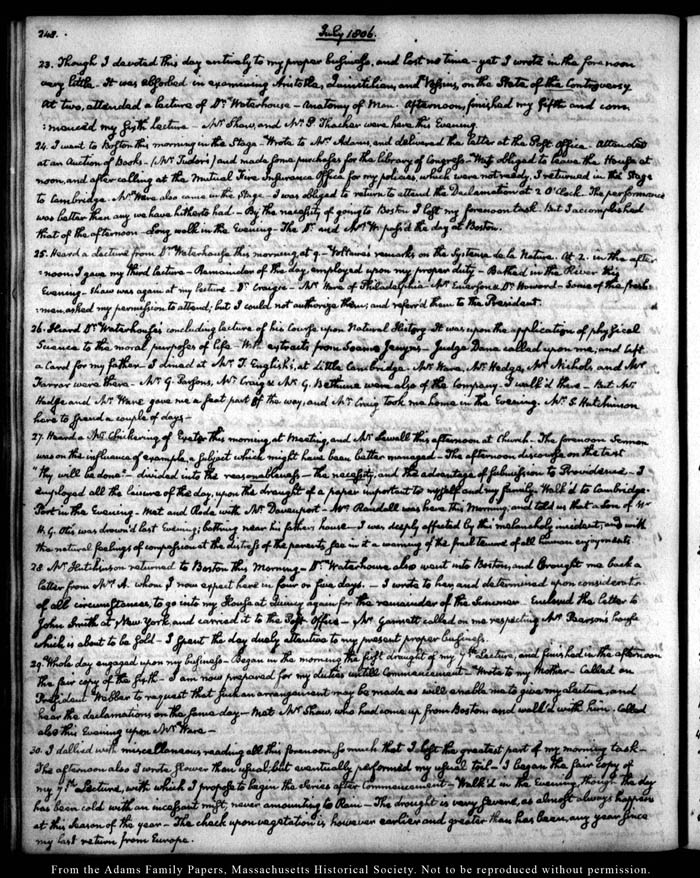 248.
July 1806.
23. Though I devoted this day entirely to my proper business, and lost no time – yet I wrote in the forenoon
very little. It was absorbed in examining Aristotle, Quinctilian, and Vossius, on the State of the Controversy
At two, attended a lecture of Dr. Waterhouse – Anatomy of Man. Afternoon, finished my fifth and com
:menced my sixth lecture – Mr. Shaw, and Mr. P Thacher were here this Evening.
24. I went to Boston this morning in the Stage – Wrote to Mrs. Adams, and delivered the letter at the Post Office. Attended
at an Auction of Books – (Mr. Tudor's) and made some purchases for the Library of Congress – Was obliged to leave the House at
noon, and after calling at the Mutual Fire Insurance Office for my policies, which were not ready, I returned in the Stage
to Cambridge. Mr. Ware also came in the Stage – I was obliged to return to attend the Declamation at 2 O'Clock. The performance
was better than any we have hitherto had – By the necessity of going to Boston I lost my forenoon task. But I accomplished
that of the afternoon – Long walk in the Evening – The Dr. and Mrs. W. pass'd the day at Boston.
25. Heard a lecture from Dr. Waterhouse this morning at 9 – Voltaire's remarks on the Systeme de la Nature. At 2. in the after
:noon, I gave my third lecture – Remainder of the day, employed upon my proper duty – Bathed in the River this
Evening – Shaw was again at my lecture – Dr. Craigie – Mr. Hare of Philadelphia – Mr. Emerson & Dr. Howard – Some of the fresh
:men asked my permission to attend; but I could not authorize them; and referr'd them to the President.
26. Heard Dr. Waterhouse's concluding lecture of his Course upon Natural History – It was upon the application of physical
Science to the moral purposes of life – With extracts from Soame Jenyns – Judge Dana called upon me, and left
a Card for my father – I dined at Mr. T. English's, at Little Cambridge. Mr. Ware, Mr. Hedge, Mr. Nichols and Mr.
Farrar were there – Mr. G. Parsons, Mr. Craig & Mr. G. Bethune were also of the Company – I walk'd there – But Mr.
Hedge and Mr. Ware gave me a seat part of the way, and Mr. Craig took me home in the Evening. Mr. S. Hutchinson
here to spend a couple of days –
27. Heard a Mr. Chickering of Exeter this morning at Meeting, and Mr. Sewall this afternoon at Church – The forenoon Sermon
was on the influence of example, a subject which might have been better managed – The afternoon discourse on the text
"Thy will be done" – divided into the reasonableness – the necessity, and the advantage of submission to Providence – I
employed all the leisure of the day, upon the draught of a paper important to myself and my family. Walk'd to Cambridge-
Port in the Evening – Met and Rode with Mr. Davenport – Mr. Randall was here this Morning, and told us that a Son of Mr
H. G. Otis was drown'd last Evening; bathing near his father's house – I was deeply affected by this melancholy incident; and with
the natural feelings of compassion at the distress of the parents, see in it a warning of the frail tenure of all human enjoyments
28. Mr. Hutchinson returned to Boston this Morning – Dr. Waterhouse also went into Boston, and brought me back a
letter from Mrs. A. whom I now expect here in four or five days. – I wrote to her, and determined upon consideration
of all circumstances, to go into my House at Quincy again for the remainder of the Summer – Enclosed the letter to
John Smith at New York, and carried it to the Post-Office – Mr. Gannett called on me respecting Mr. Pearson's house
which is about to be sold – I spent the day duely attentive to my present proper business.
29. Whole day engaged upon my business – Began in the morning the first draught of my 7th. Lecture, and finished in the afternoon
the fair copy of the sixth – I am now prepared for my duties untill Commencement – Wrote to my Mother – Called on
President Webber to request that such an arrangement may be made as will enable me to give my lecture, and
hear the declamations on the same day – Met Mr. Shaw, who had come up from Boston and walk'd with him. Called
also this Evening upon Mr. Ware –
30. I dallied with miscellaneous reading all this forenoon, so much that I lost the greatest part of my morning task –
The afternoon also I wrote slower than usual; but eventually performed my usual toil – I began the fair copy of
my 7th. Lecture, with which I propose to begin the series after commencement – Walk'd in the Evening, though the day
has been cold with an incessant mist, never amounting to Rain – The drought is very severe, as almost always happens
at this Season of the year – The check upon vegetation is however earlier and greater than has been, any year since
my last return from Europe.
From the Adams Family Papers, Massachusetts Historical Society. Not to be reproduced without permission.